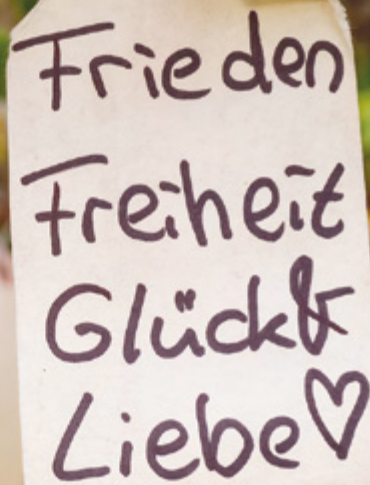 Frieden
Freiheit
Glück &
Liebe ♡